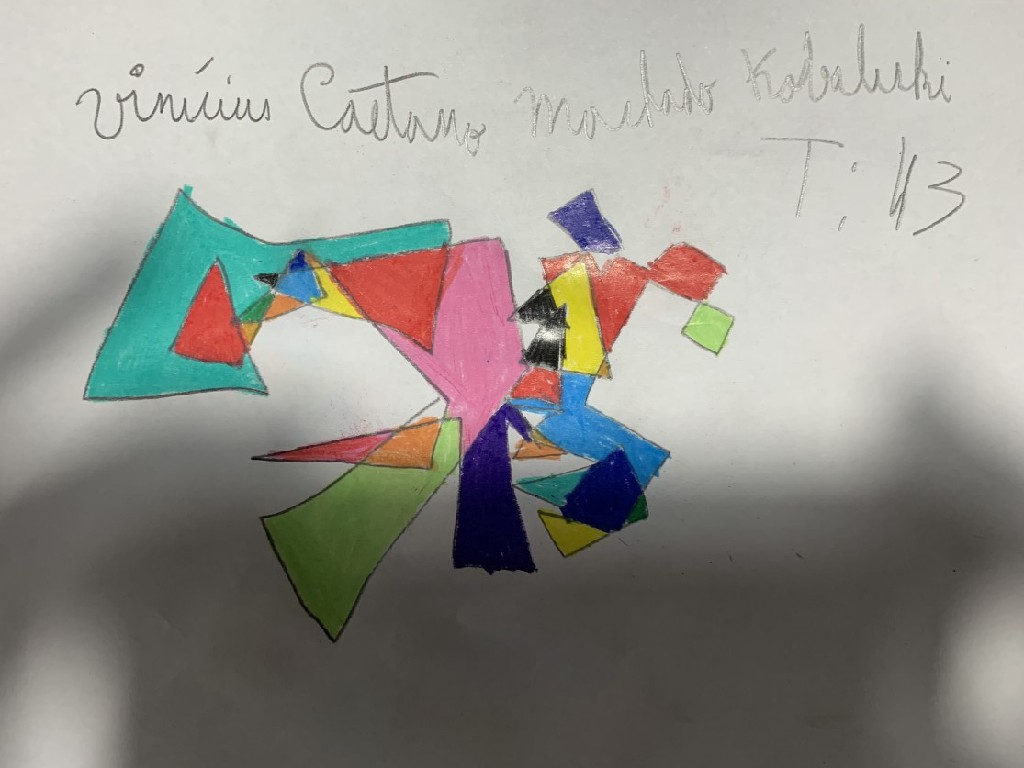 Vinícius Caetano Machado Kobaluki
T: 43